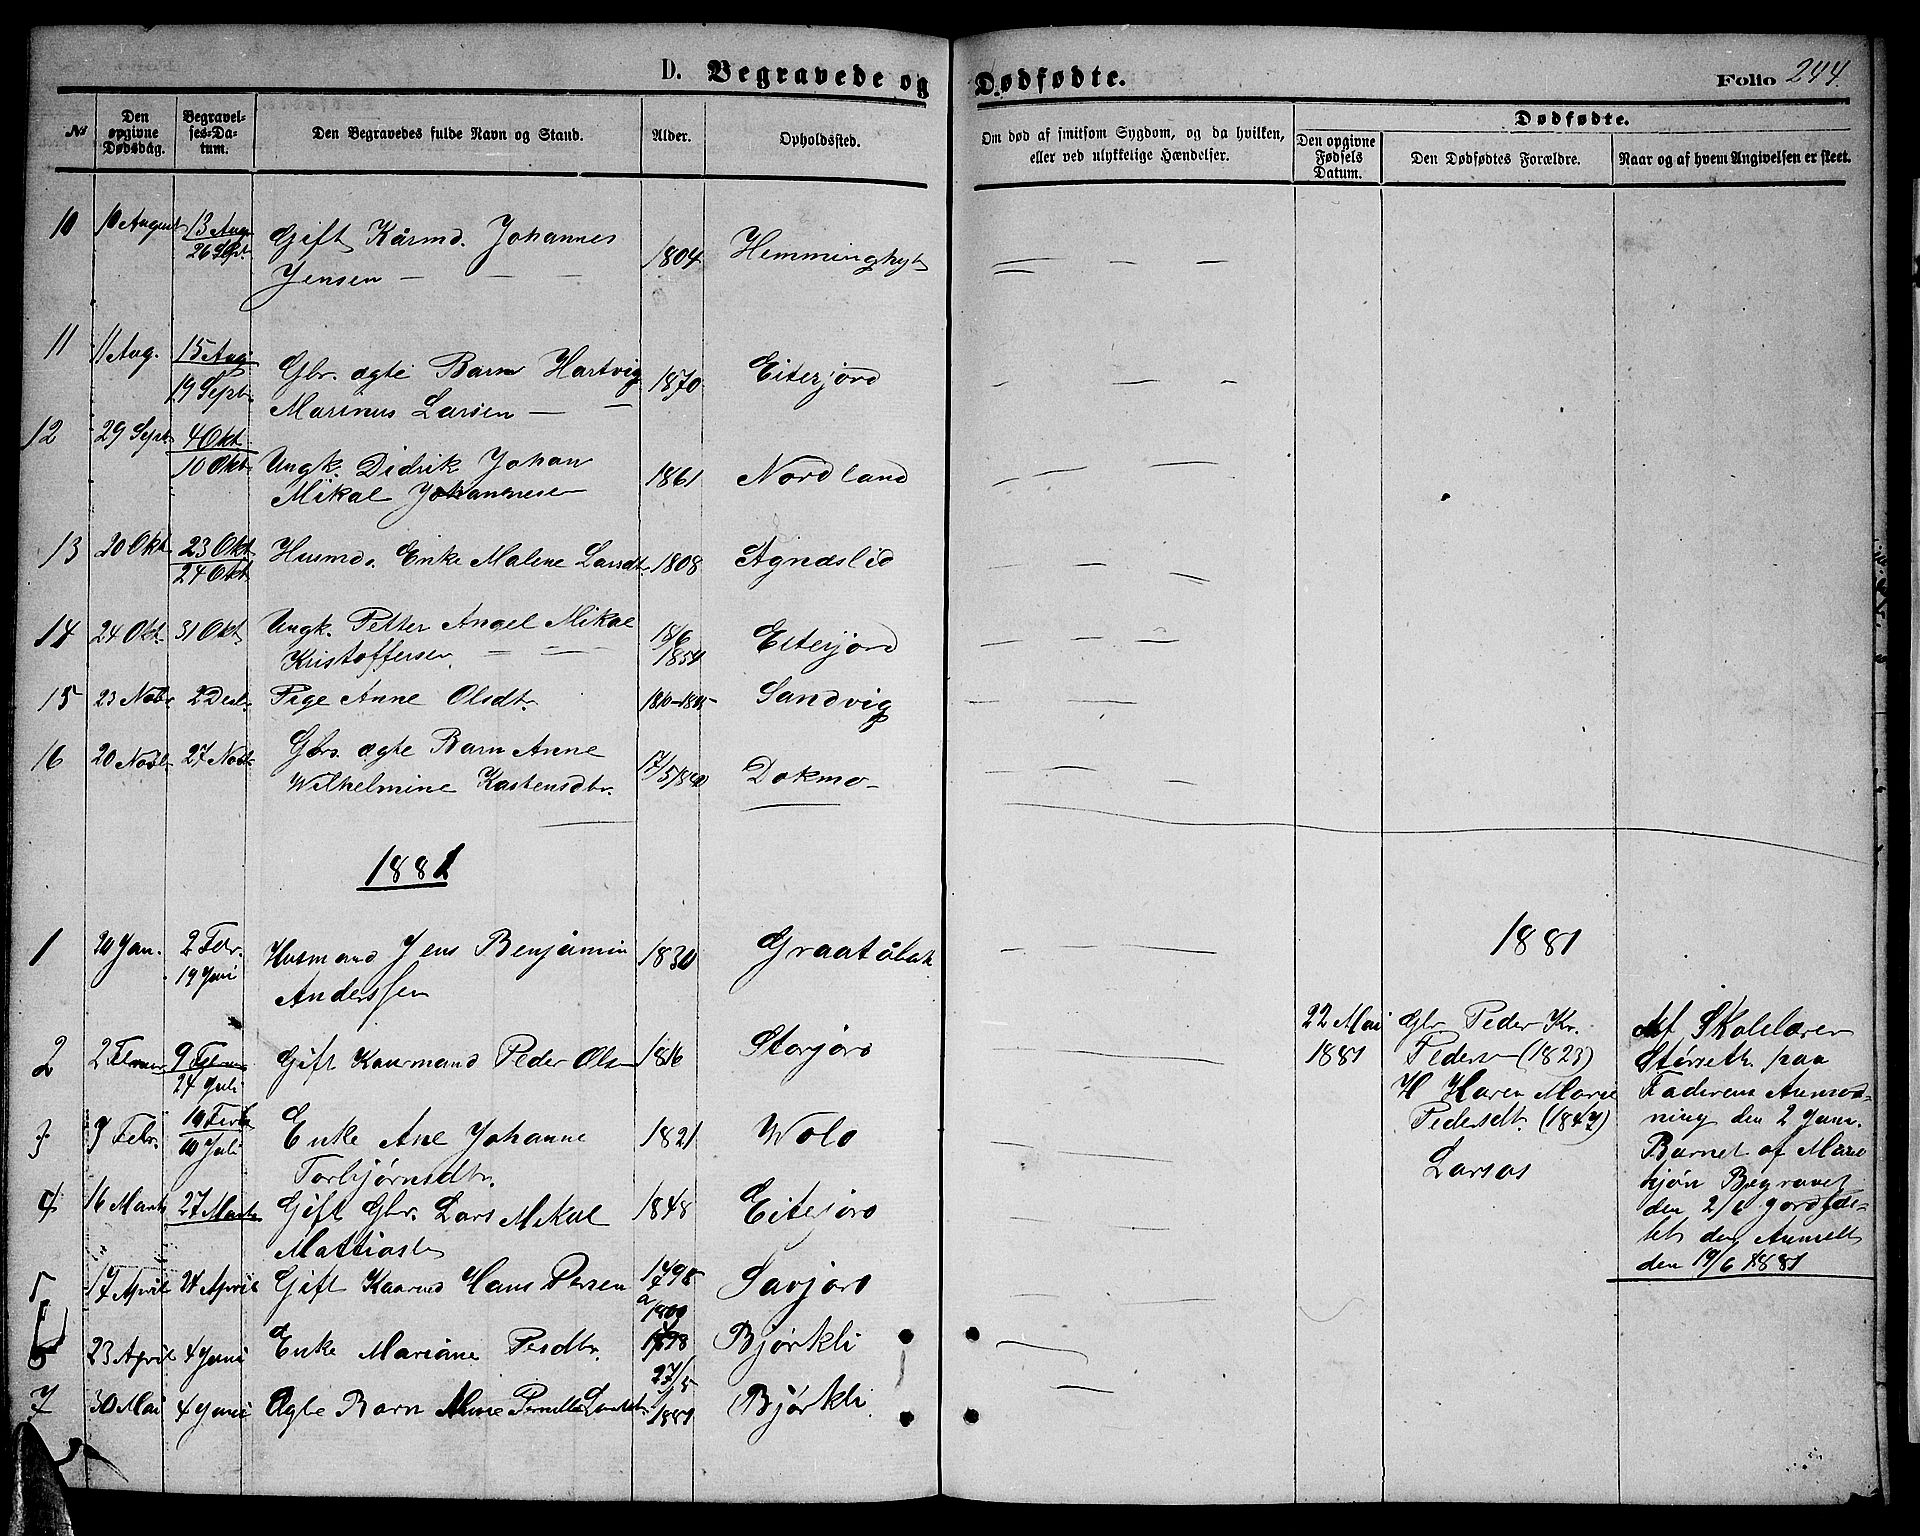 D. Begravede og Dødfødte.
Folio 244.
No
Den opgivne Dødsdag.
Begravelses-Datum.
Den Begravedes fulde Navn og Stand.
Alder.
Opholdssted.
Om død af smitsom Sygdom, og da hvilken,
eller ved ulykkelige Hændelser.
Dødfødte.
Den opgivne Fødsels Datum.
Den Dødfødtes Forældre.
Naar og af hvem Angivelsen er skeet.
10 10 August 13 Aug 26 Sept Gift Kårmd. Johannes 1804 Hemminghyt
Jensen
11 11 Aug. 15 Aug 19 Sept Gbr. ægte Barn Hartvig 1870 Eiterjord
Marinus Larsen
12 29 Sept 4 Okt 10 Okt Ungk. Didrik Johan 1861 Nordland
Mikal Johannesen
13 20 Okt 23 Okt 24 Okt Husmds. Enke Malene Larsdt. 1808 Agndslid
14 24 Okt. 31 Okt. Ungk. Petter Angel Mikal 18/6 1854 Eiterjord
Kristoffersen
15 23 Nobr 2 Desbr Pige Anne Olsdtr. Sandvig
16 20 Novbr 27 Novbr Gbrs. ægte Barn Anne 17/5 1880 Dokmo
Wilhelmine Kastensdtr.
1881
1 20 Jan. 2 Febr. 19 Juni Husmand Jens Benjamin 1830 Graatålak
Anderssen
2 2 Februar 9 Februar 24 Juli Gift Kaarmand Peder Olsen 1816 Storjord
3 9 Febr. 19 Febr 10 Juli Enke Ane Johanne 1821 Wold
Torbjørnsdtr.
4 16 Marts 27 Marts Gift Gbr. Lars Mikal 1848 Eiterjord
Mattiasen
5 17 April 24 April Gift Kaarmd Hans Persen 1798 a 1800 Savjord
6 23 April 4 Juni Enke Mariane Persdtr. 1798 Bjørkli
7 30 Mai 4 Juni Ægte Barn Aline Pernille Larsdtr. 27/5 1881 Bjørkli.
1881
22 Mai 1881
Gbr Peder Kr.
Pedersen (1823)
H Maren Marie
Pedersdt. (1842)
Larsos
Af Skolelærer
Storseth paa
Faderens Anmod-
ning den 2 Juni.
Barnet af Mand
kjøn Begravet
den 2/6
den Anmeldt
den 19/6 1881